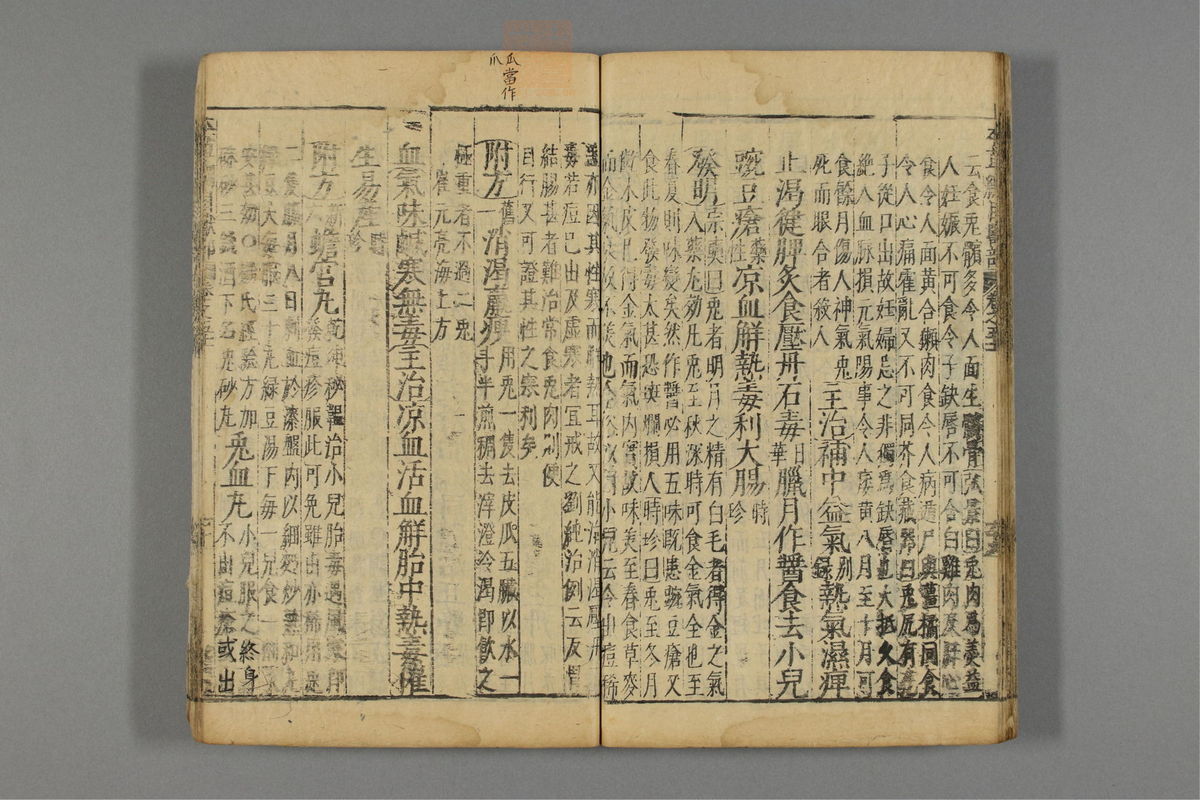 人妊娠不可食令子缺唇不可合白雞肉及肝心
食令人面黃合獺肉食令人病遁尸與薑橘同食
令人心痛霍亂又不可同芥食
子從口出故妊婦忌之非獨為缺唇也大抵久食
絕人血脉損元氣陽事令人痿黃八月至十月可
食餘月傷人神氣兎死而眼合者殺人 主治補中益氣別錄熱氣濕痺
止渴健脾炙食壓丹石毒日華臘月作醤食去小兒
豌豆瘡藥性凉血解熱毒利大腸時珍
發明宗奭曰兎者明月之精有白毛者得金之氣
入藥尤効凡兎至秋深時可食金氣全也至
春夏則味變矣然作醤必用五味既患豌豆瘡又
食此物發毒太甚恐斑爛損人時珍曰兎至冬月
齕木皮已得金氣而氣內實故味美至春食草麥
而金氣
性寒而解熱耳故又能治消渴
毒若痘已出及虛寒者宜戒之劉純治例云反胃
結腸甚者難治常食兎肉則便
目行又可證其性之寒利矣
附方舊一消渴羸瘦用兎一隻去皮瓜五臟以水一
斗半煎稠去滓澄冷渴即飲之
極重者不過二兎
崔元亮海上方
血氣味鹹寒無毒主治凉血活血解胎中熱毒催
生易產時珍
附方新六蟾宮丸乾坤秘韞治小兒胎毒遇風寒即
發痘疹服此可免雖出亦稀
二隻臘月八日刺血於漆盤內以細麪炒熟和
豆大每服三十丸綠豆湯下每一兒食一
安甚効〇楊氏經驗方加
硃砂三錢酒下名兎砂丸 兎血丸小兒服之終身
不出痘瘡或出
瓜當作
爪